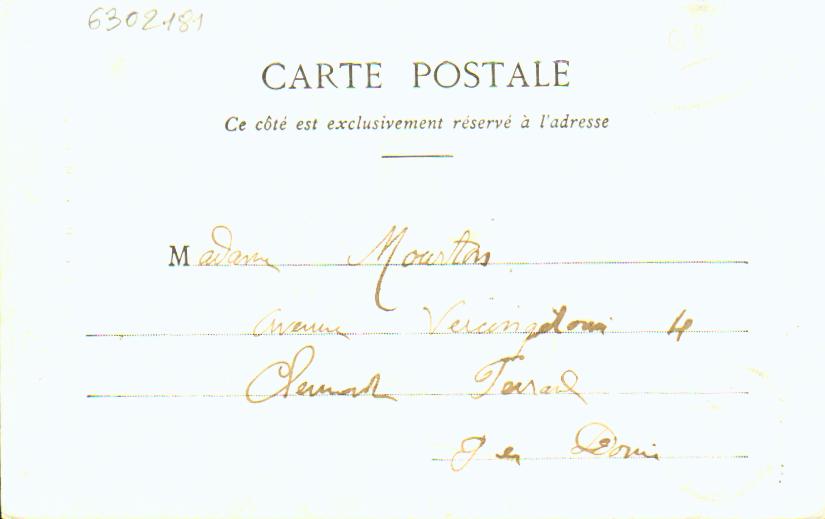 6302181
CARTE POSTALE
Ce côté est exclusivement réservé à l'adresse
Madame Mourton
avenue Vercingétorix 4
Clermont Ferrand
P de Dôme